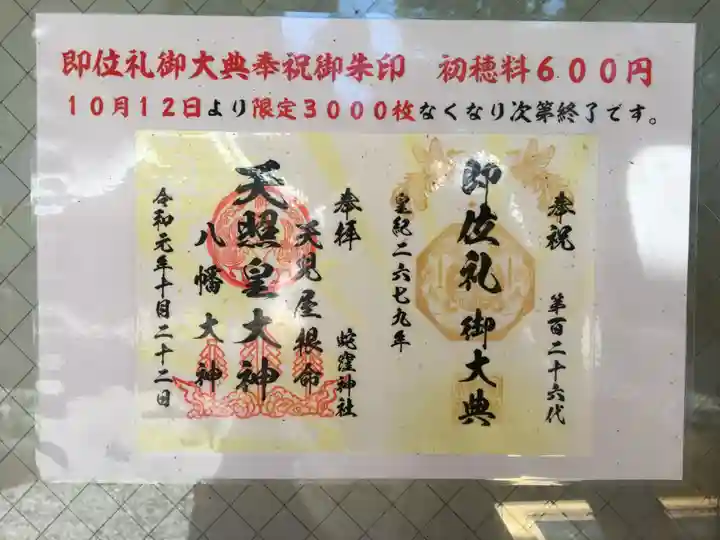 即位礼御大典奉祝御朱印　初穂料６００円
１０月１２日より限定３０００枚なくなり次第終了です。
奉祝　第百二十六代
即位礼御大典
皇紀二六七九年
奉拝　蛇窪神社
天児屋根命
天照皇大神
八幡大神
令和元年十月二十二日